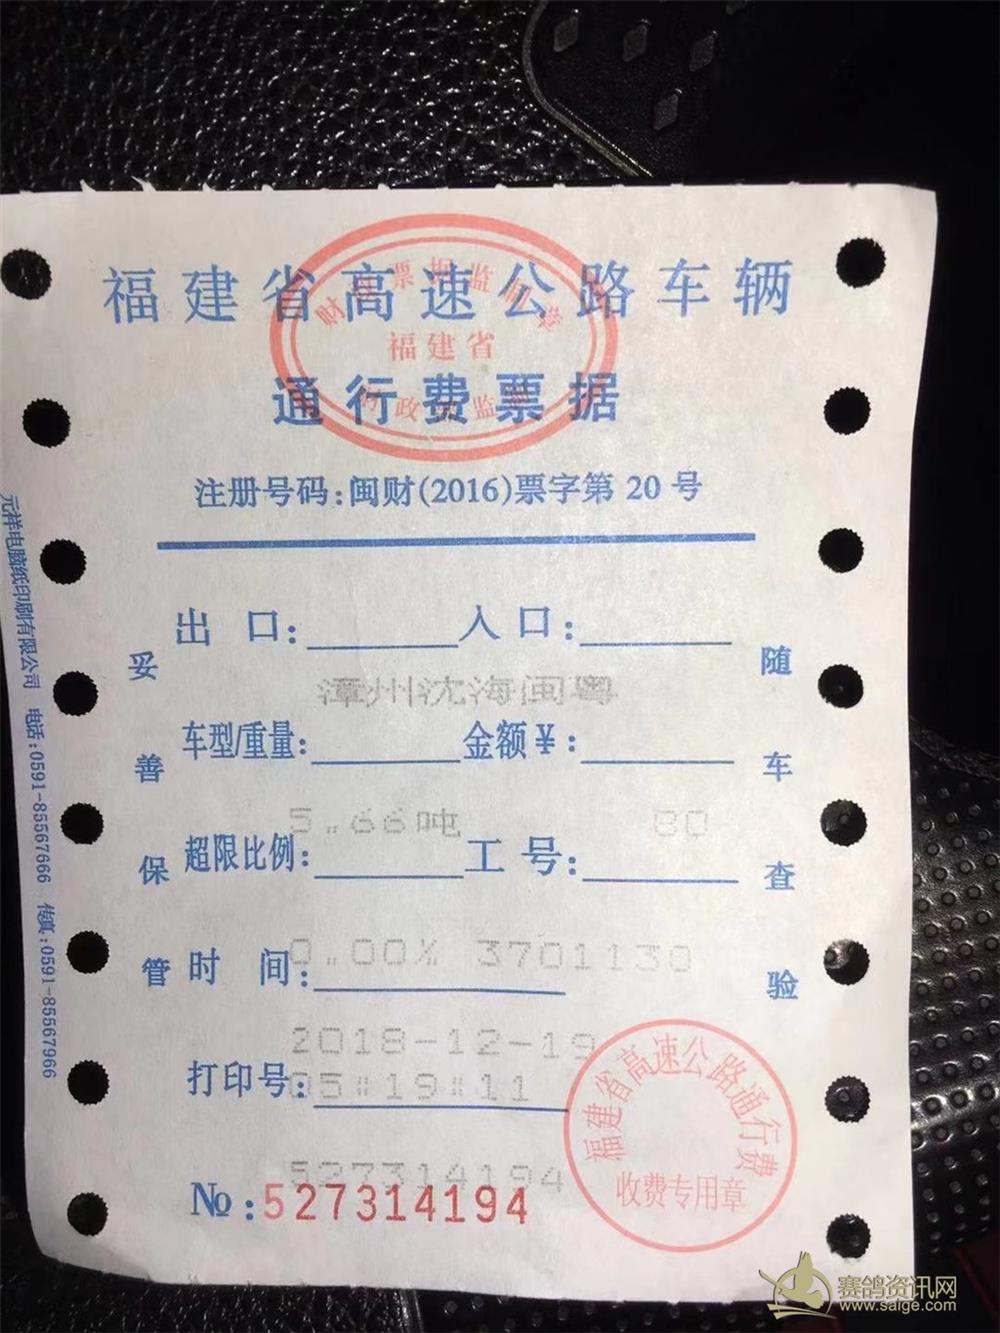 福建省高速公路车辆
通行费票据
财政票据监制章
福建省
财政部监制
注册号码:闽财(2016)票字第 20 号
出 口: 入 口:
漳州沈海闽粤
车型/重量: 金额￥:
5.66吨 80
超限比例: 工 号:
0.00% 3701130
时 间:
2018-12-19
05:19:11
打印号:
527314194
№:527314194
妥善保管
随车查验
元祥电脑纸印刷有限公司 电话:0591-85567666 传真:0591-85567966
福建省高速公路通行费
收费专用章
赛鸽资讯网
www.saige.com